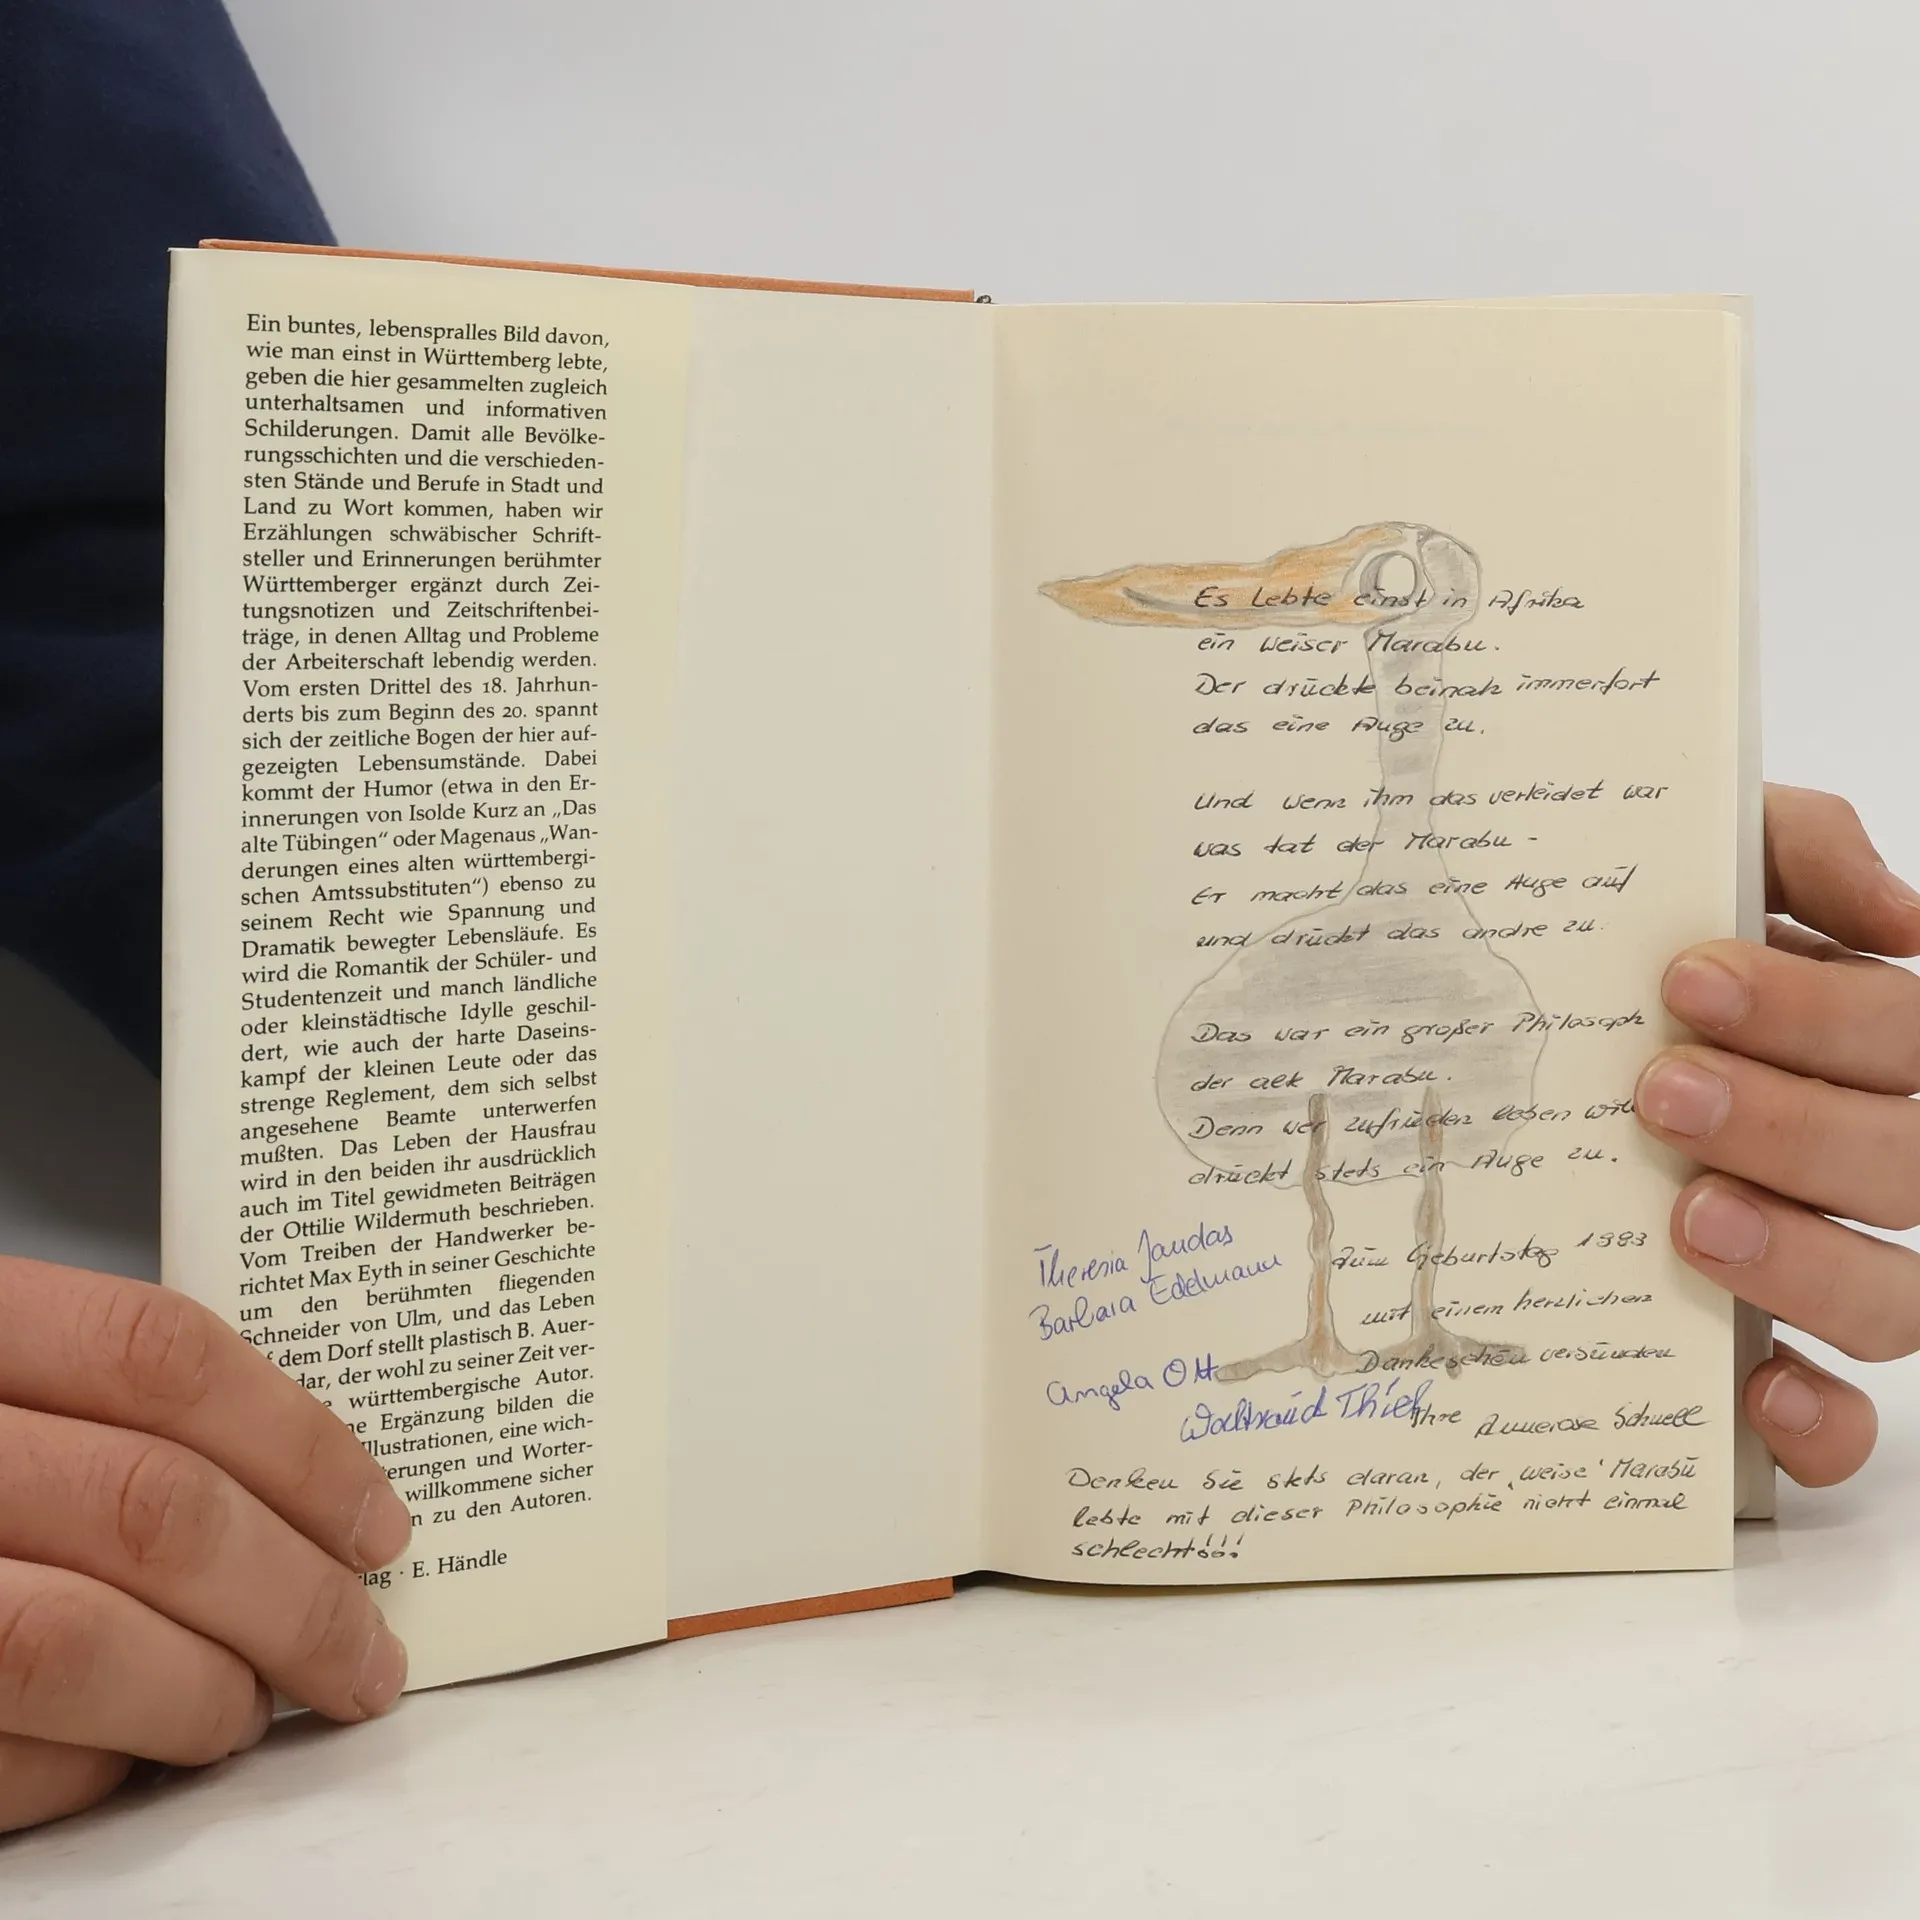 Ein buntes, lebenspralles Bild davon,
wie man einst in Württemberg lebte,
geben die hier gesammelten zugleich
unterhaltsamen und informativen
Schilderungen. Damit alle Bevölke-
rungsschichten und die verschieden-
sten Stände und Berufe in Stadt und
Land zu Wort kommen, haben wir
Erzählungen schwäbischer Schrift-
steller und Erinnerungen berühmter
Württemberger ergänzt durch Zei-
tungsnotizen und Zeitschriftenbei-
träge, in denen Alltag und Probleme
der Arbeiterschaft lebendig werden.
Vom ersten Drittel des 18. Jahrhun-
derts bis zum Beginn des 20. spannt
sich der zeitliche Bogen der hier auf-
gezeigten Lebensumstände. Dabei
kommt der Humor (etwa in den Er-
innerungen von Isolde Kurz an „Das
alte Tübingen“ oder Magenaus „Wan-
derungen eines alten württembergi-
schen Amtssubstituten“) ebenso zu
seinem Recht wie Spannung und
Dramatik bewegter Lebensläufe. Es
wird die Romantik der Schüler- und
Studentenzeit und manch ländliche
oder kleinstädtische Idylle geschil-
dert, wie auch der harte Daseins-
kampf der kleinen Leute oder das
strenge Reglement, dem sich selbst
angesehene Beamte unterwerfen
mußten. Das Leben der Hausfrau
wird in den beiden ihr ausdrücklich
auch im Titel gewidmeten Beiträgen
der Ottilie Wildermuth beschrieben.
Vom Treiben der Handwerker be-
richtet Max Eyth in seiner Geschichte
um den berühmten fliegenden
Schneider von Ulm, und das Leben
dem Dorf stellt plastisch B. Auer-
dar, der wohl zu seiner Zeit ver-
württembergische Autor.
Ergänzung bilden die
Illustrationen, eine wich-
erungen und Worter-
willkommene sicher
zu den Autoren.
lag · E. Händle
Es lebte einst in Afrika
ein weiser Marabu.
Der drückte beinah immerfort
das eine Auge zu.
Und wenn ihm das verleidet war
was tat der Marabu -
Er macht das eine Auge auf
und drückt das andre zu.
Das war ein großer Philosoph
der alte Marabu.
Denn wer zufrieden leben will
drückt stets ein Auge zu.
Theresia Jaudas
Barbara Edelmann
Angela Ott
Waltraud Thief
Zum Geburtstag 1983
mit einem herzlichen
Dankeschön verbunden
Ihre Annerose Schnell
Denken Sie stets daran, der ‚weise‘ Marabu
lebte mit dieser Philosophie nicht einmal
schlecht!!!